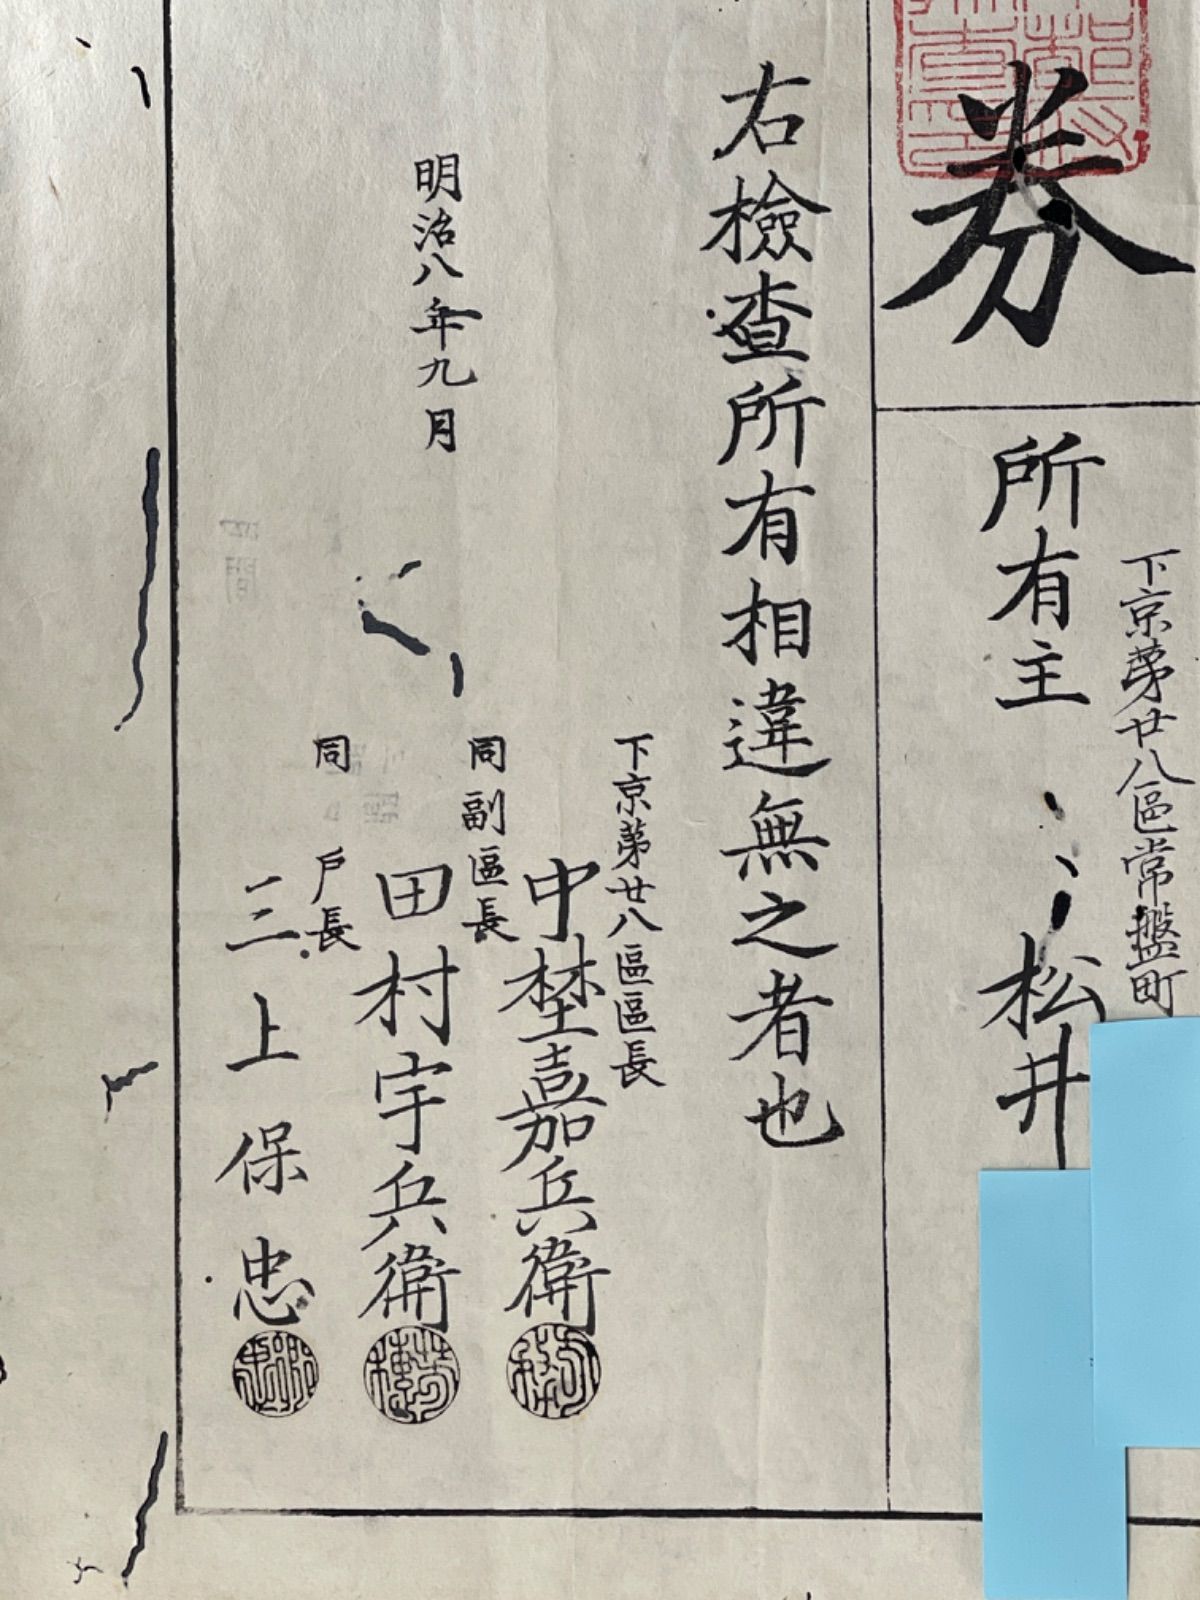 券
下京第廿八區常盤町
所有主 松井
右檢査所有相違無之者也
下京第廿八區區長
中埜嘉兵衞
同副區長
田村宇兵衞
同 戸長
三上保忠
明治八年九月